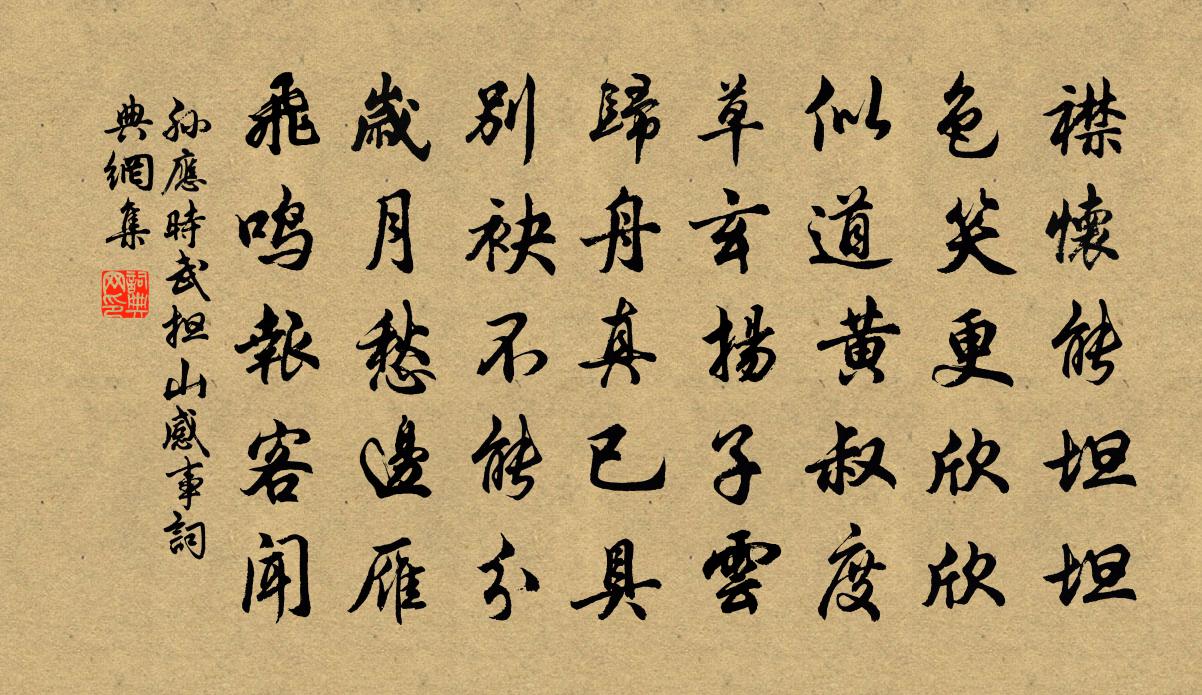 襟懷能坦坦
色笑更欣欣
似道黃叔度
草玄揚子雲
歸舟真已具
別袂不能分
歲月愁邊雁
飛鳴報客聞
孫應時武担山感事詞
典網集
詞典网印